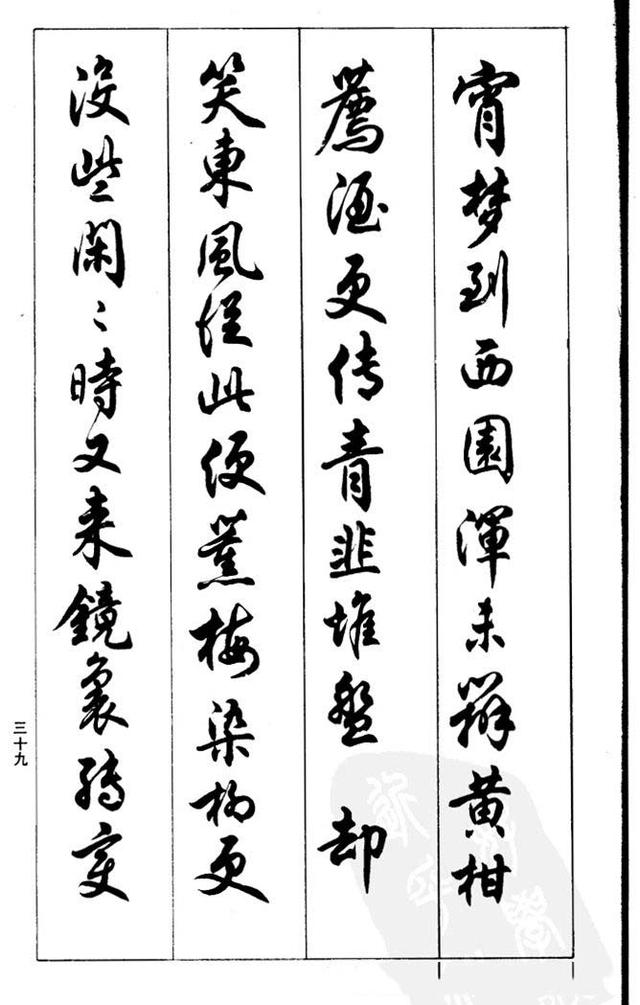 宵梦到西園渾未辦黄柑
薦酒更传青韭堆盤 却
笑東風從此便薰梅染柳更
没些閑〻時又来鏡裏轉变
三十九